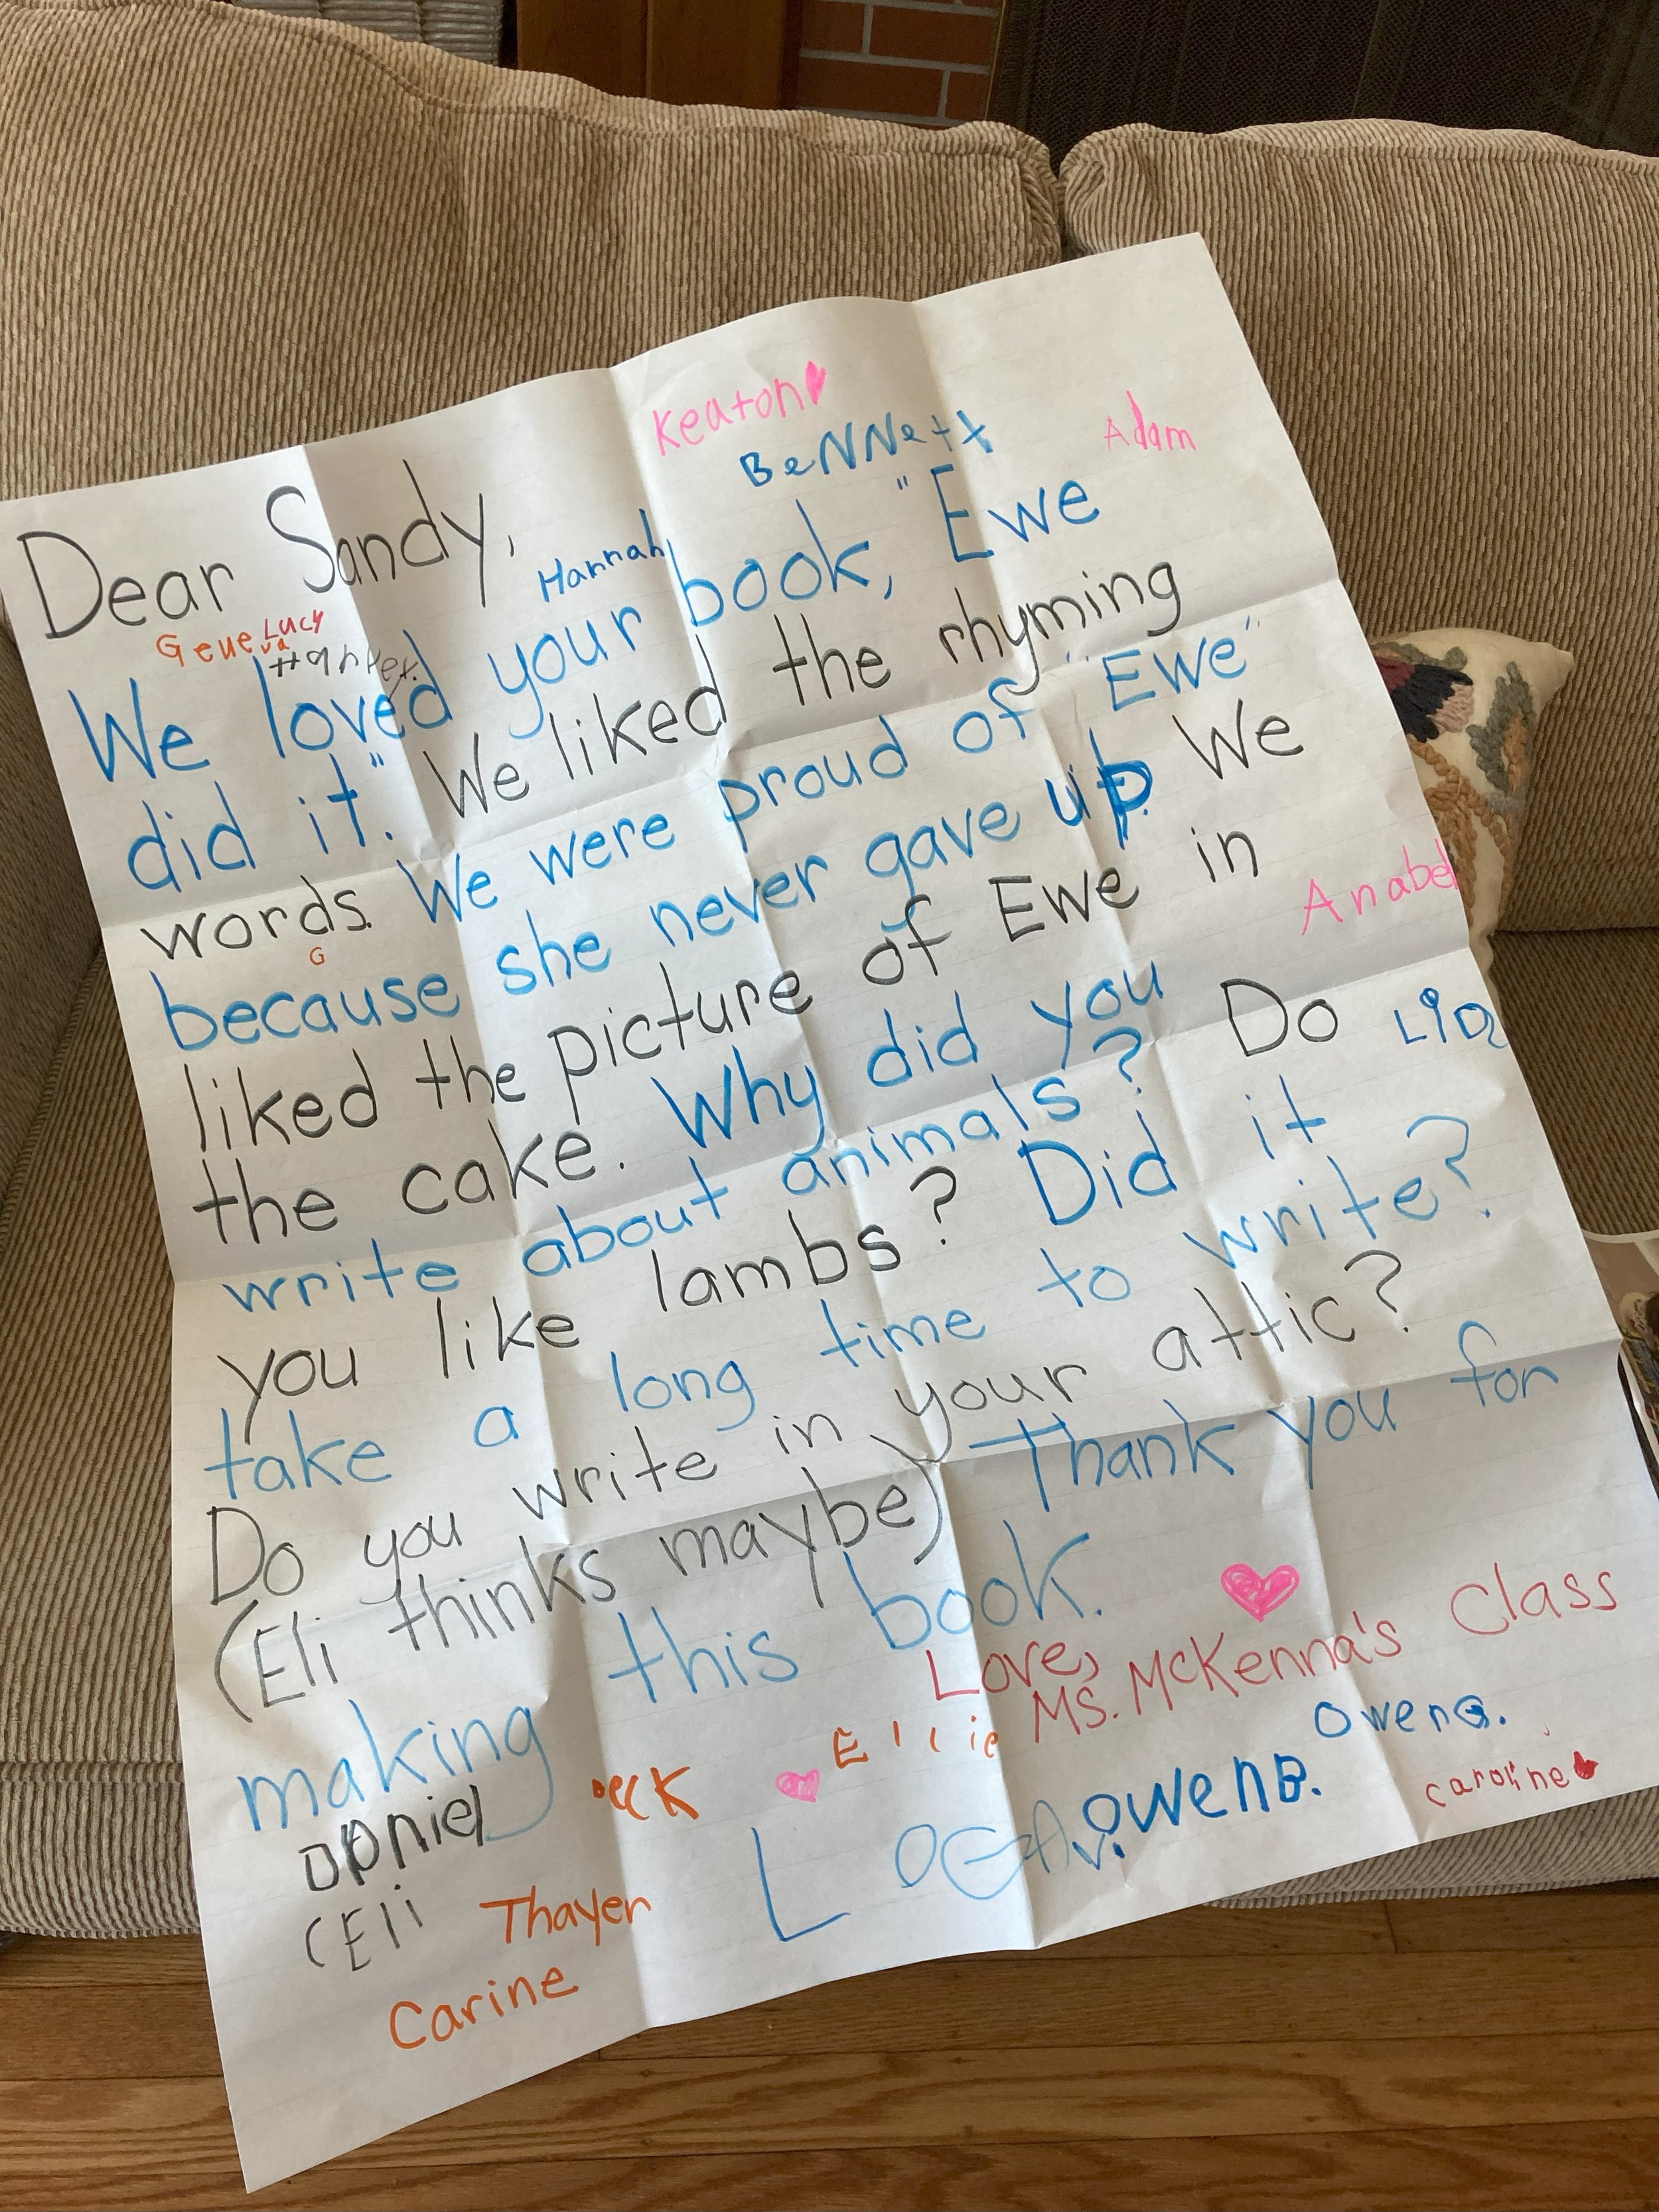 Keaton
BeNNett
Adam
Dear Sandy,
Hannah
Lucy
Geneva
We loved your book, "Ewe
did it." We liked the rhyming
words. We were proud of "Ewe"
G
because she never gave up. We
liked the picture of Ewe in
Anabel
the cake. Why did you
write about animals? Do
Lia
you like lambs? Did it
take a long time to write?
Do you write in your attic?
(Eli thinks maybe) Thank you for
making this book.
Love,
Ms. McKenna's Class
Ellie
Owen G.
Daniel
Owen B.
caroline
LOGAN
(Eli
Thayer
Carine